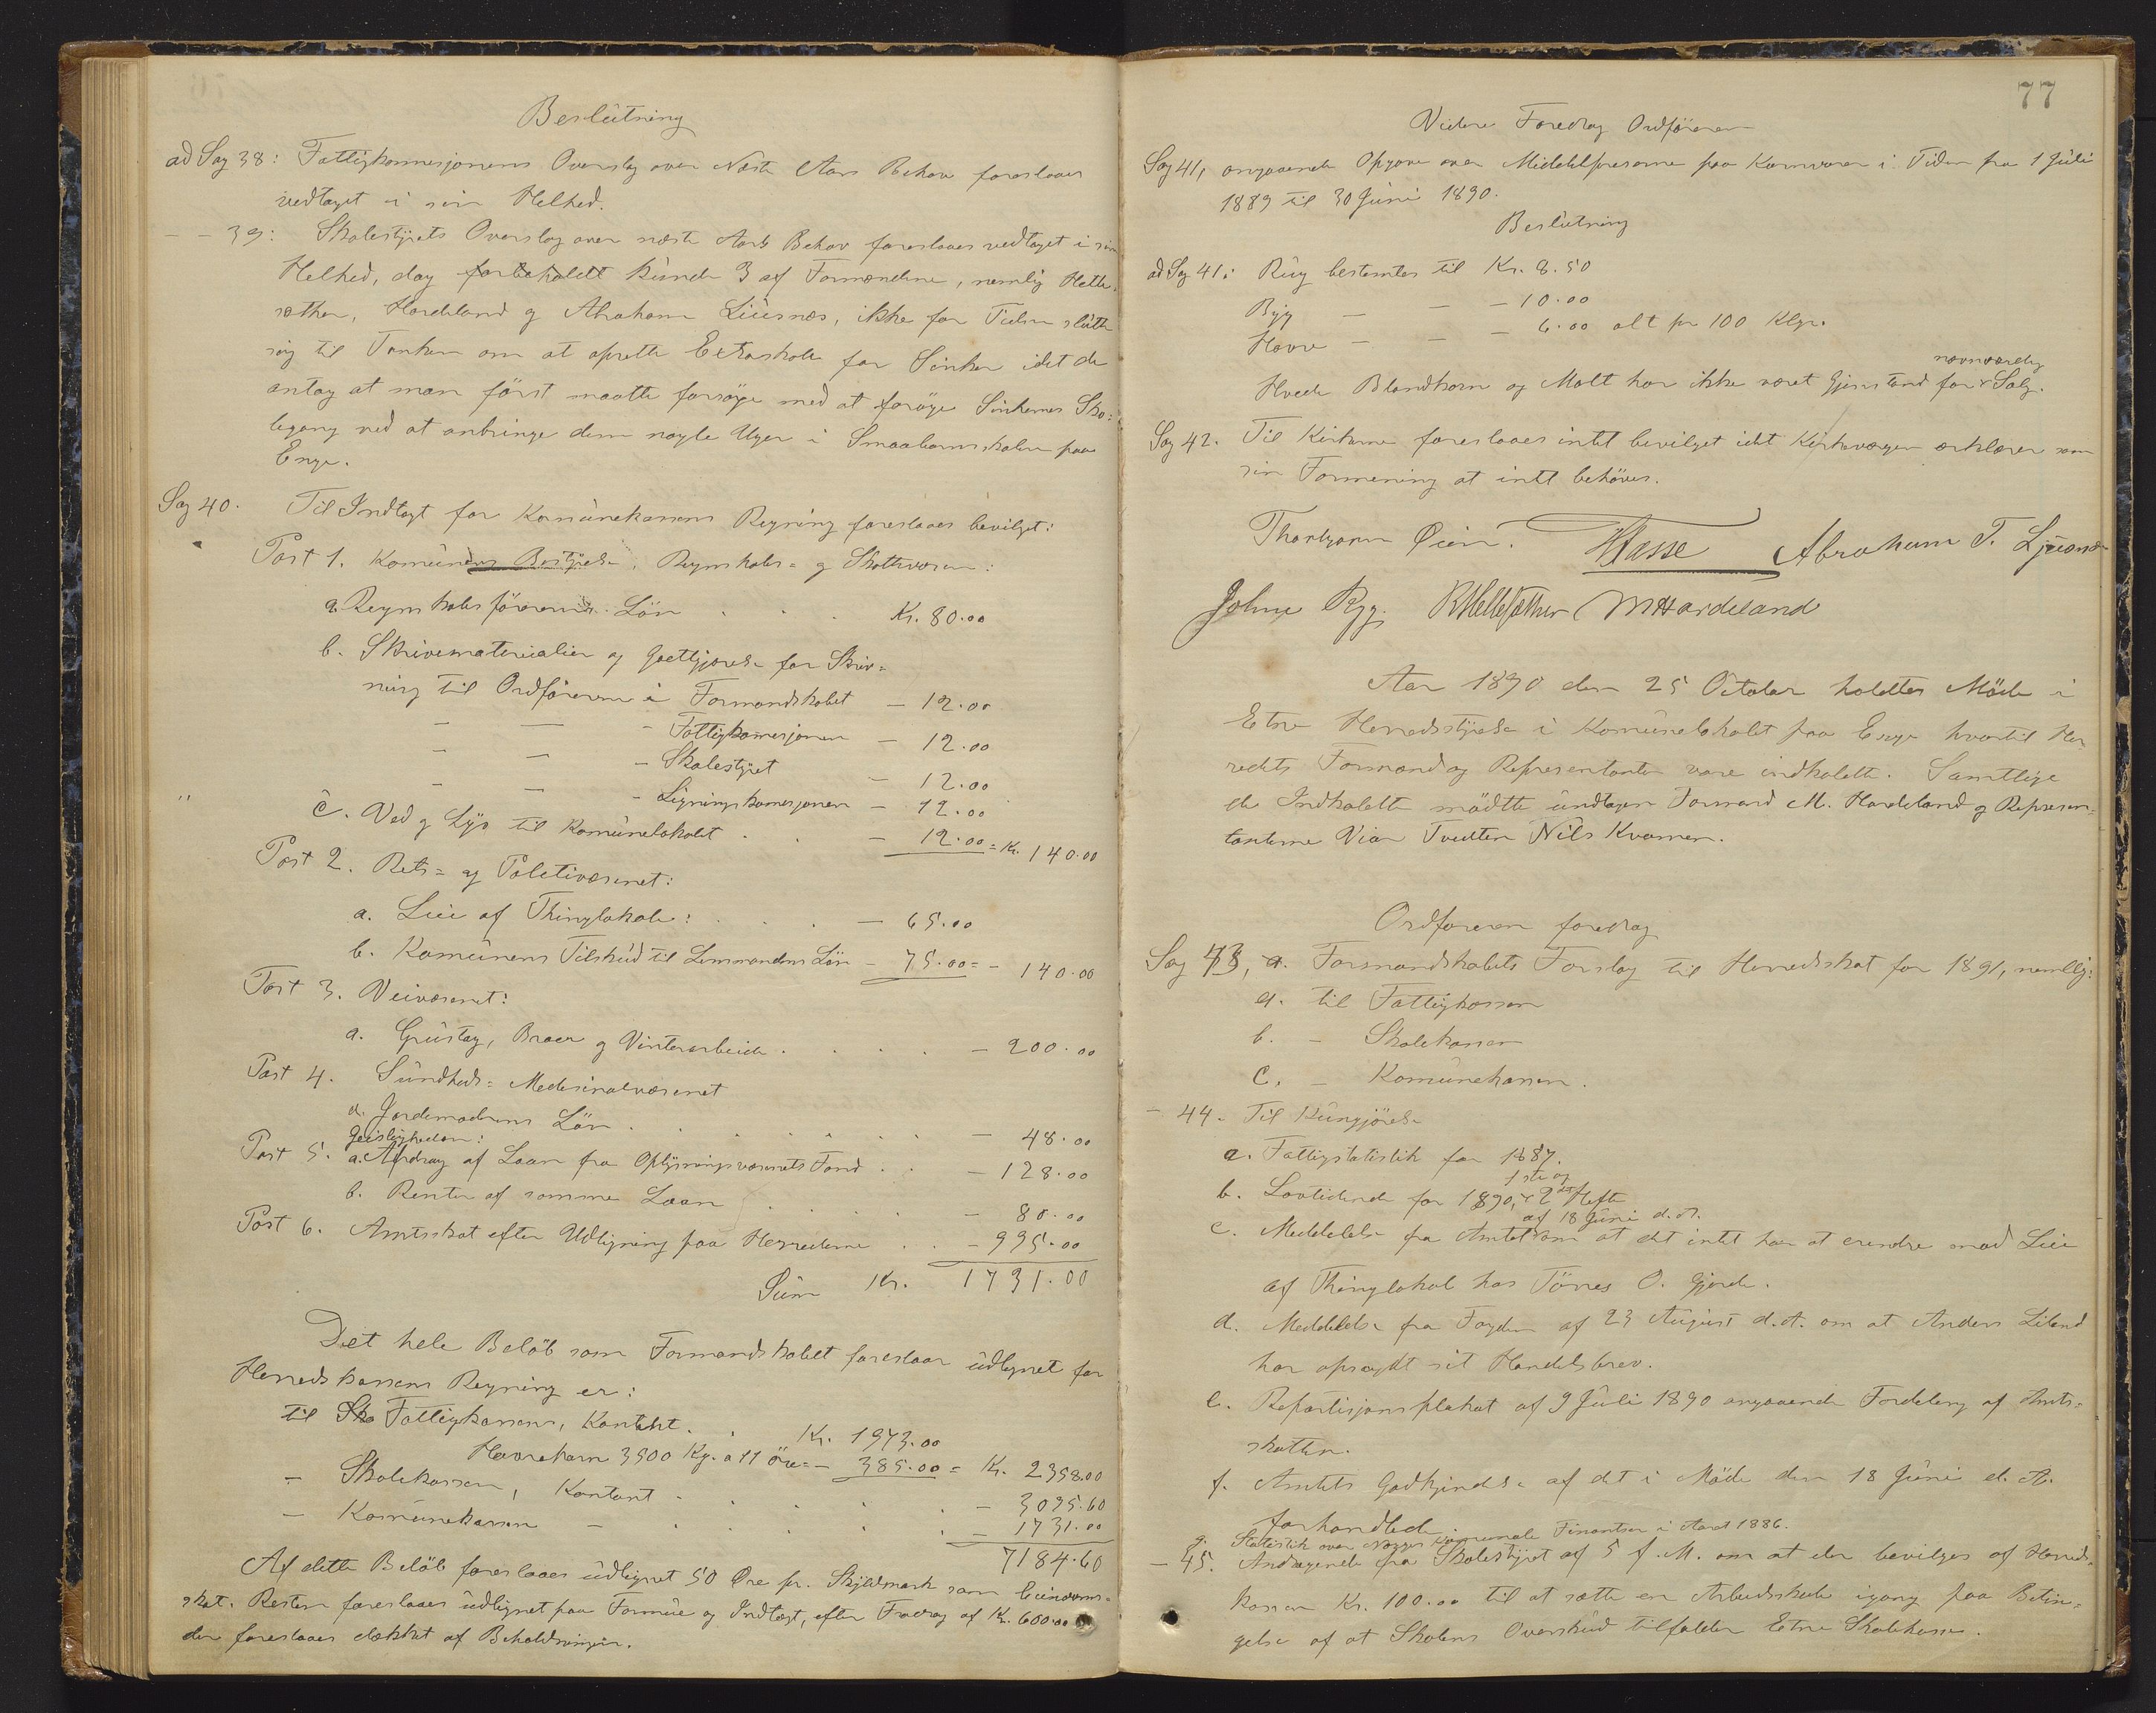 Beslutning
ad Sag 38: Fattigkommisjonens Overslag over Næste Aars Behov foreslaaes
vedtaget i sin Helhed.
— — 39: Skolestyrets Overslag over næste Aars Behov foreslaaes vedtaget i sin
Helhed, dog forbeholdt kunde 3 af Formændene, nemlig Helle-
sæther, Hardeland og Abraham Liusnæs, ikke for Tiden slutte
sig til Tanken om at oprette Extraskole for Sinker idet de
antog at man først maatte forsøge med at forøge Sinkernes Sko=
legang ved at anbringe dem nogle Uger i Smaabarnsskolen paa
Enge.
Sag 40. Til Indtægt for Komunekassens Regning foreslaaes bevilget:
Post 1. Komunens Bestyrelse, Regnskabs= og Skattevæsen:
a. Regnskabsførerens Løn . . Kr. 80.00
b. Skrivematerialier og Godtgjørelse for Skriv=
ning til Ordføreren i Formandskabet — 12.00
— — - Fattigkomisjonen — 12.00
— — - Skolestyret — 12.00
— — - Ligningskomisjonen — 12.00
c. Ved og Lys til Komunelokalet . . — 12.00 = Kr. 140.00
Post 2. Rets= og Politivæsenet:
a. Leie af Thinglokale: . . . — 65.00
b. Komunens Tilskud til Lensmandens Løn — 75.00 = - 140.00
Post 3. Veivæsenet:
a. Grustag, Broer og Vinterarbeide . . . . — 200.00
Post 4. Sundheds= Medesinalvæsenet
a. Jordemoderens Løn . . . . . . . — 48.00
Geistligheden:
Post 5. a. Afdrag af Laan fra Oplysningsvæsenets Fond . . — 128.00
b. Renter af samme Laan . . . . . — 80.00
Post 6. Amtsskat efter Udligning paa Herrederne . . — 995.00
Sum Kr. 1731.00
Det hele Beløb som Formandskabet foreslaar udlignet for
Herredskassens Regning er:
til Sko Fattigkassen, Kontant . . Kr. 1973.00
Havrekorn 3500 Kg. a 11 Øre = — 385.00 = Kr. 2358.00
— Skolekassen, Kontant . . . . . — 3095.60
— Komunekassen — . . . . . — 1731.00
7184.60
Af dette Beløb foreslaaes udlignet 50 Øre pr. Skyldmark som Eiendoms=
skat. Resten foreslaaes udlignet paa Formue og Indtægt, efter Fradrag af Kr. 600.00
der foreslaaes dækket af Beholdningen.
77
Videre Foredrog Ordføreren
Sag 41, angaaende Opgave over Middelpriserne paa Kornvarer i Tiden fra 1 Juli
1889 til 30 Juni 1890.
Beslutning
ad Sag 41: Rug bestemtes til Kr. 8.50
Byg — — — 10.00
Havre — — — 6.00 alt pr 100 Klgr.
nævneværdig
Hvede Blandkorn og Malt har ikke været Gjenstand for Salg.
Sag 42. Til Kirkerne foreslaaes intet bevilget idet Kirkeværgen erklærer som
sin Formening at intet behøves.
Thorbjørn Øien. Hasse Abraham T. Ljusnæs
Johne Ryg. RHellesæther MHardeland
Aar 1890 den 25 Octobr holdtes Møde i
Etne Herredsstyrelse i Komunelokalet paa Enge hvortil Her
redets Formænd og Representanter vare indkaldte. Samtlige
de Indkaldte mødte undtagen Formand M. Hardeland og Represen=
tanterne Vier Tvedten Nils Kvamen.
Ordføreren foredrog
Sag 43, a. Formandskabets Forslag til Herredsskat for 1891, nemlig:
a. til Fattigkassen
b. — Skolekassen
c. — Komunekassen.
— 44. Til Kungjørelse
a. Fattigstatistik for 1887.
1ste og
b. Lovtidende for 1890, 2det Hefte
af 18 Juni d.A.
c. Meddelelse fra Amtet om at det intet har at erindre mod Leie
af Thinglokal hos Tønes O. Gjerde.
d. Meddelelse fra Fogden af 23 August d.A. om at Anders Liland
har opsagt sit Handelsbrev.
e. Repartisjonsplakat af 9 Juli 1890 angaaende Fordeling af Amts=
skatten.
f. Amtets Godkjendelse af det i Møde den 18 Juni d.A.
forhandlede
g. Statistik over Norges komunale Finantser i Aaret 1886.
— 45. Andragende fra Skolestyret af 5 f.M. om at der bevilges af Herreds-
kassen Kr. 100.00 til at sætte en Arbeidsskole igang paa Betin=
gelse af at Skolens Overskud tilfalder Etne Skolekasse.